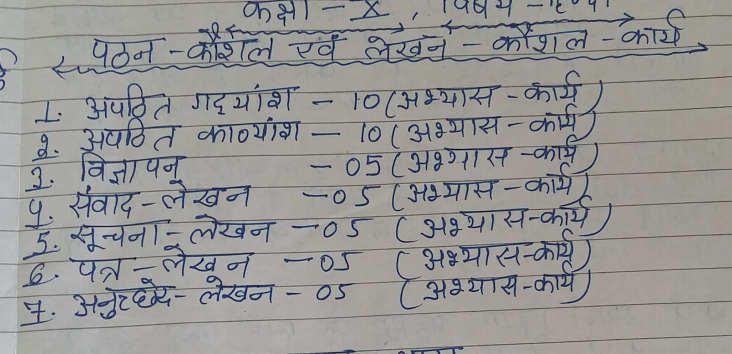 कक्षा - X, विषय - हिन्दी
पठन - कौशल एवं लेखन - कौशल - कार्य
1. अपठित गद्यांश - 10 (अभ्यास - कार्य)
2. अपठित काव्यांश - 10 (अभ्यास - कार्य)
3. विज्ञापन - 05 (अभ्यास - कार्य)
4. संवाद - लेखन - 05 (अभ्यास - कार्य)
5. सूचना - लेखन - 05 (अभ्यास - कार्य)
6. पत्र - लेखन - 05 (अभ्यास - कार्य)
7. अनुच्छेद - लेखन - 05 (अभ्यास - कार्य)